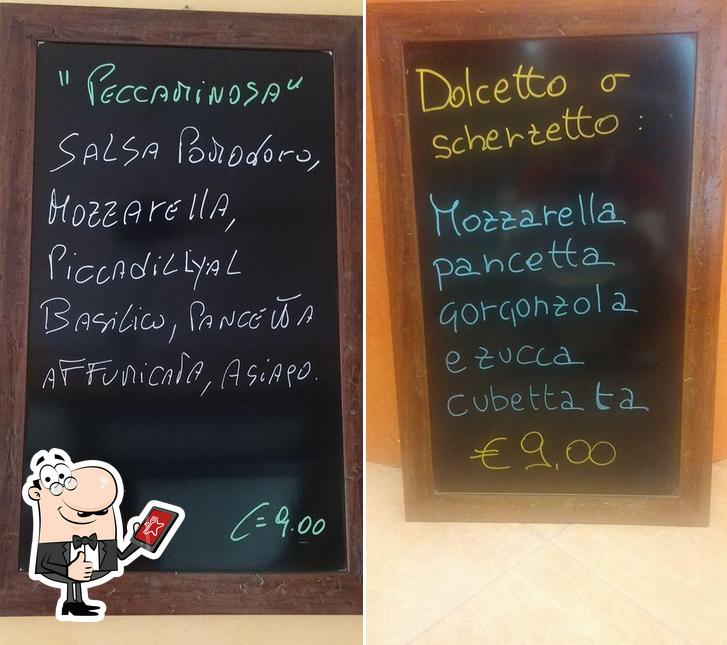 "PECCAMINOSA"
SALSA POMODORO,
MOZZARELLA,
PICCADILLY AL
BASILICO, PANCETTA
AFFUMICATA, ASIAGO.
€=9.00
Dolcetto o
scherzetto :
Mozzarella
pancetta
gorgonzola
e zucca
cubettata
€ 9,00